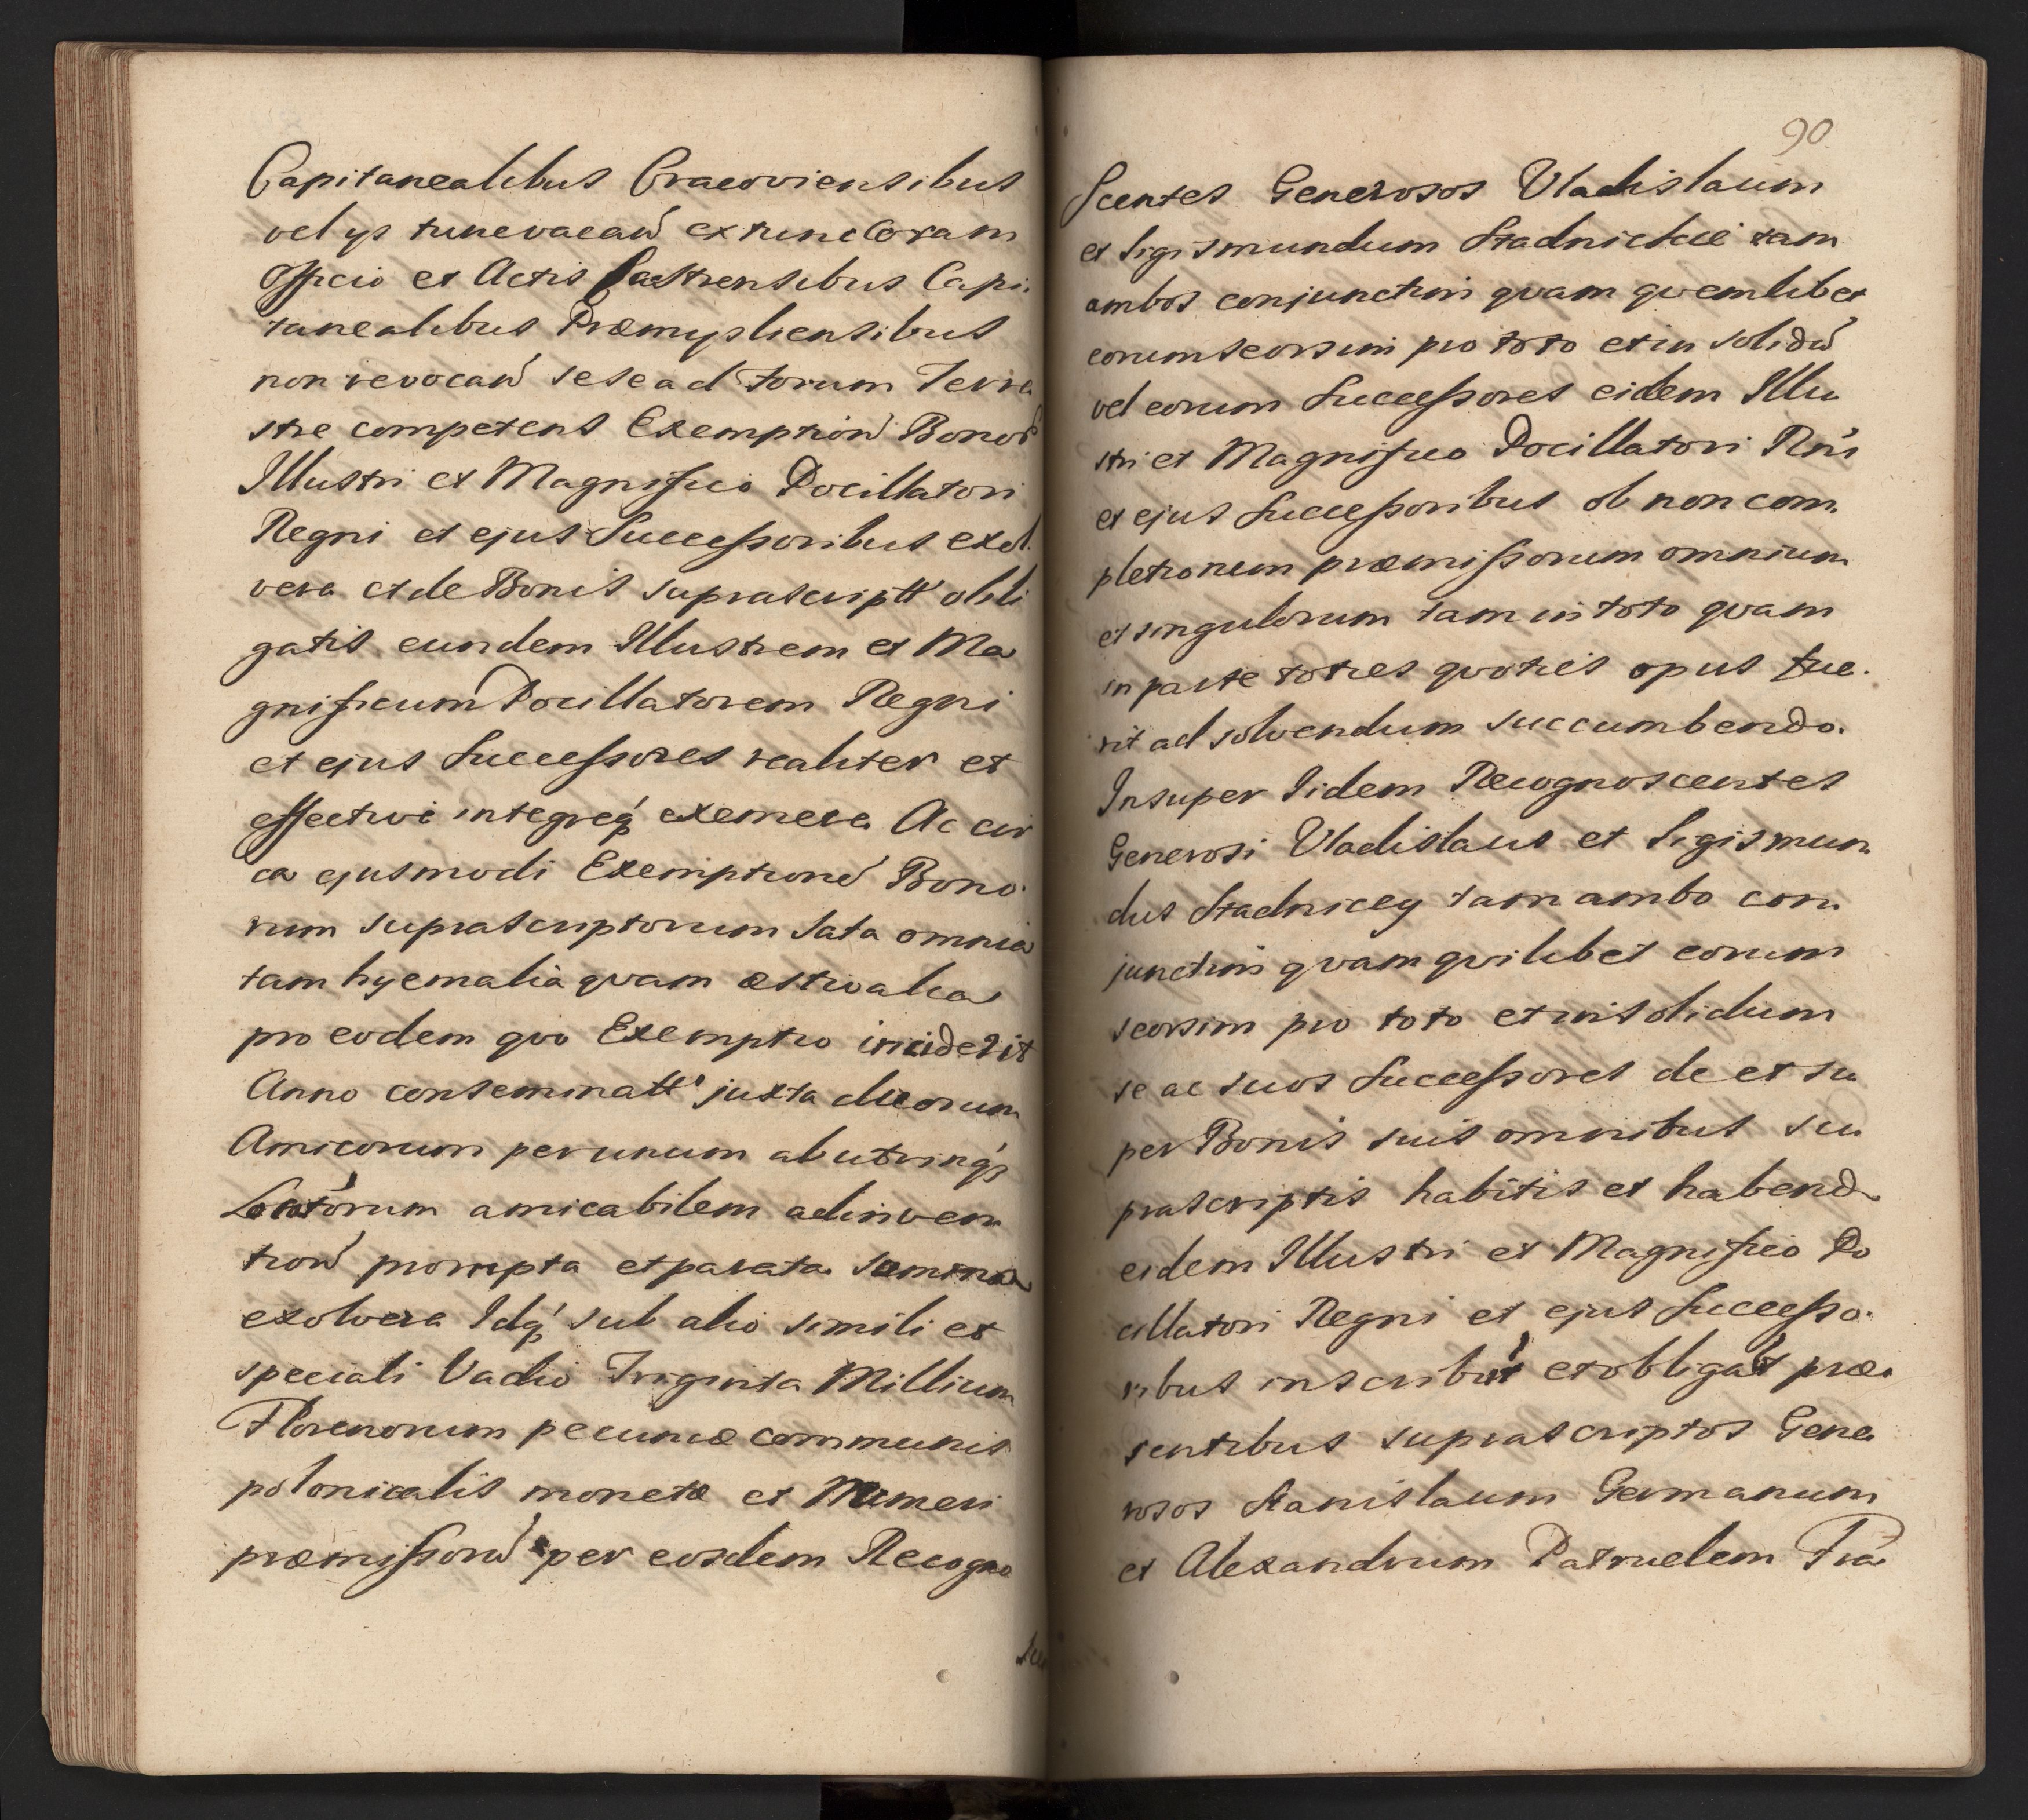 Capitanealibus Cracoviensibus
vel ijs tunc vacan̄ extunc Coram
Officio et Actis Castrensibus Capi-
tanealibus Præmysliensibus
non revocan̄ sese ad forum Terre
stre competens Exemption̄ Bonor̄
Illustri et Magnifico Pocillatori
Regni et ejus Successoribus exol
vera et de Bonis suprascriptt obli
gatis eundem Illustrem et Ma
gnificum Pocillatorem Regni
et ejus Successores realiter et
effective integreq́ exemera Ac cir
ca ejusmodi Exemptione Bono
rum suprascriptorum Sata omnia
tam hyemalia quam æstivalia
pro eodem quo Exemptio inciderit
Anno conseminatt juxta duorum
Amicorum per unum ab utrinq́
adinven
tion̄ prompta et parata semina
exolvera Idq́ sub alio simili et
speciali Vadio Triginta Millium
Florenorum pecuniæ communis
polonicalis monetæ et Numeri
præmissorū per eosdem Recogno
90
scentes Generosos Vladislaum
et Sigismundum Stadnickie tam
ambos conjunctim quam quemlibet
eorum seorsim pro toto et in solidū
vel eorum Successores eidem Illu
stri et Magnifico Pocillatori Rni
et ejus Successoribus ob non com
pletionem præmissorum omnium
et singulorum tam in toto quam
in parte toties quoties opus fue
rit ad solvendum succumbendo.
Insuper Iidem Recognoscentes
Generosi Vladislaus et Sigismun
dus Stadniccy tam ambo con
junctim quam quilibet eorum
seorsim pro toto et in solidum
se ac suos Successores de et su
per Bonis suis omnibus su
prascriptis habitis et habend
eidem Illustri et Magnifico Po
cillatori Regni et ejus Successo
ribus inscribūt et obligat præ
sentibus suprascriptos Gene
rosos Stanislaum Germanum
et Alexandrum Patruelem Fra